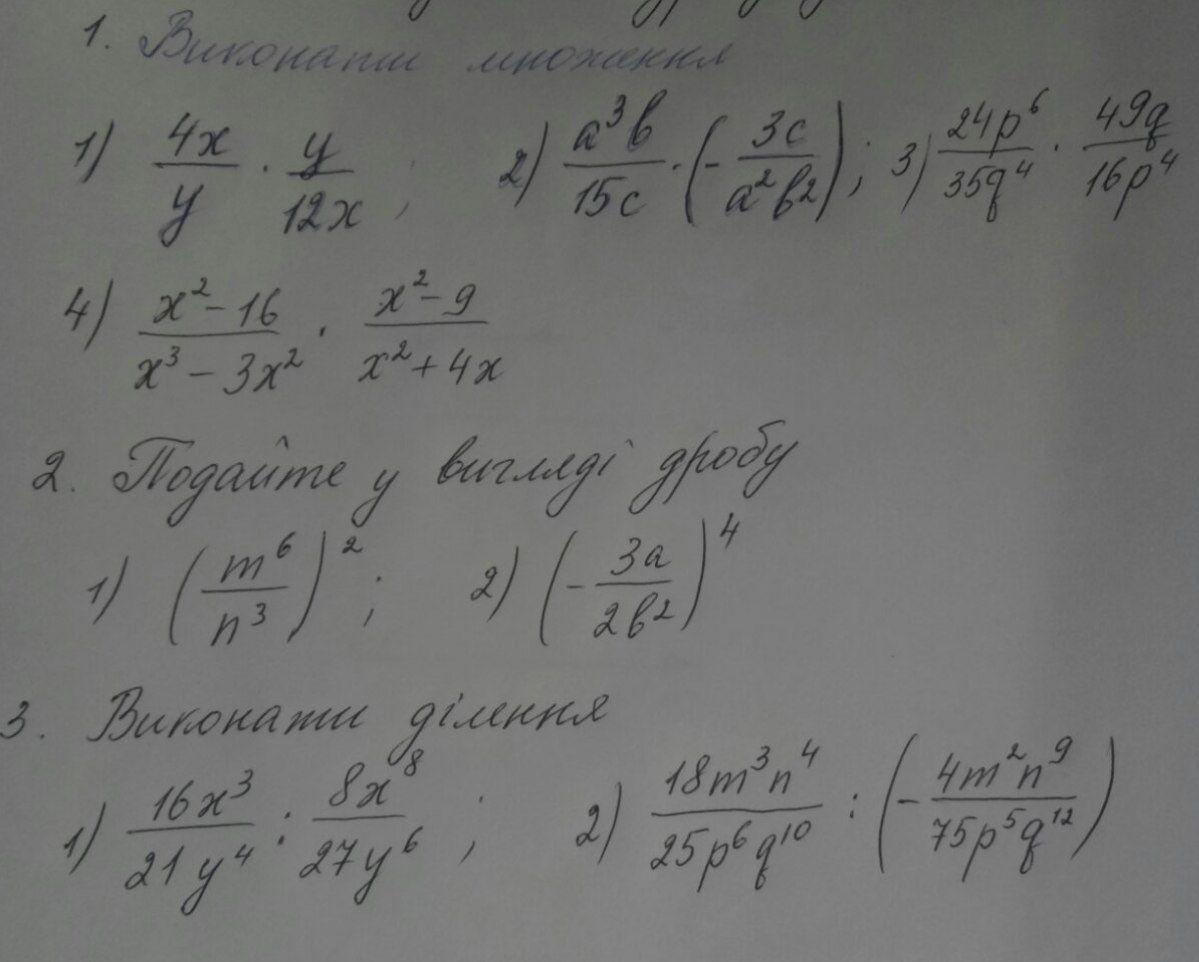 1. Виконати множення
1) 4x/y · y/12x ; 2) a³b/15c · (- 3c/a²b²) ; 3) 24p⁶/35q⁴ · 49q/16p⁴
4) x² - 16/x³ - 3x² · x² - 9/x² + 4x
2. Подайте у вигляді дробу
1) (m⁶/n³)² ; 2) (- 3a/2b²)⁴
3. Виконати ділення
1) 16x³/21y⁴ : 8x⁸/27y⁶ ; 2) 18m³n⁴/25p⁶q¹⁰ : (- 4m²n⁹/75p⁵q¹²)